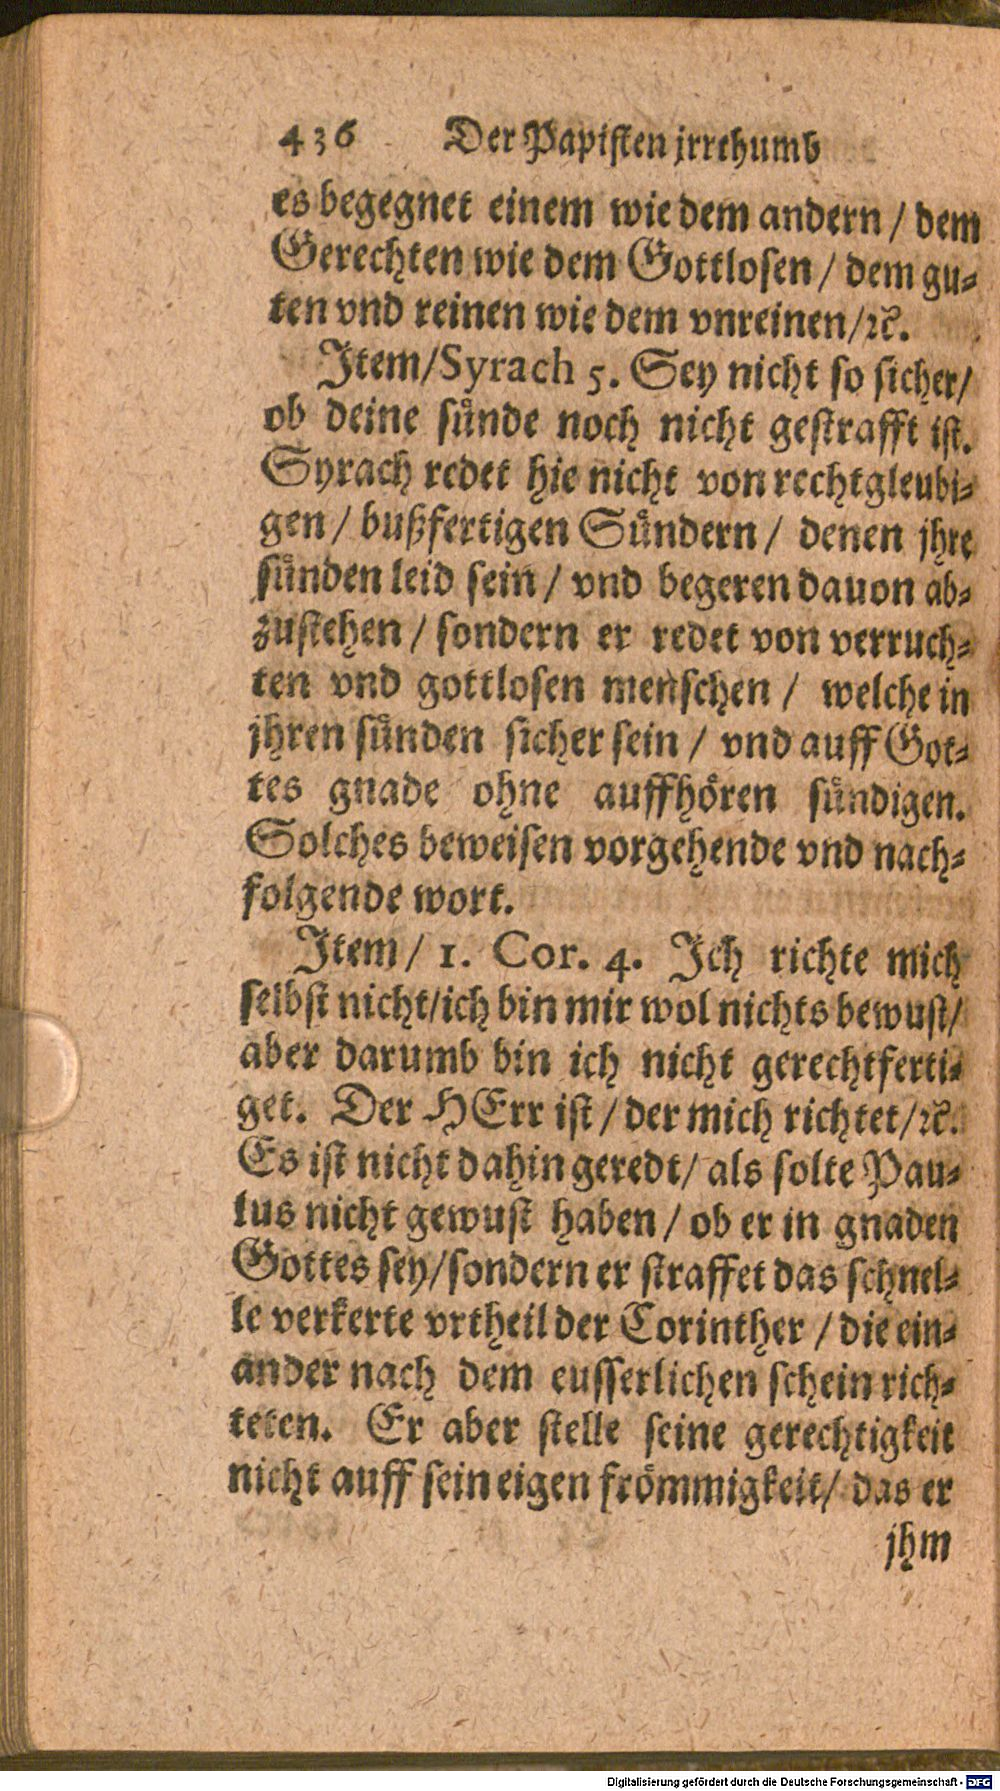 436 Der Papisten jrrthumb
es begegnet einem wie dem andern / dem
Gerechten wie dem Gottlosen / dem gu-
ten vnd reinen wie dem vnreinen/ꝛc.
Item/Syrach 5. Sey nicht so sicher/
ob deine suͤnde noch nicht gestrafft ist.
Syrach redet hie nicht von rechtgleubi-
gen / bußfertigen Suͤndern / denen jhre
suͤnden leid sein / vnd begeren dauon ab-
zustehen / sondern er redet von verruch-
ten vnd gottlosen menschen / welche in
jhren suͤnden sicher sein / vnd auff Got-
tes gnade ohne auffhoͤren suͤndigen.
Solches beweisen vorgehende vnd nach-
folgende wort.
Item / 1. Cor. 4. Ich richte mich
selbst nicht/ich bin mir wol nichts bewust/
aber darumb bin ich nicht gerechtferti-
get. Der HErr ist / der mich richtet/ꝛc.
Es ist nicht dahin geredt/ als solte Pau-
lus nicht gewust haben / ob er in gnaden
Gottes sey/sondern er straffet das schnel-
le verkerte vrtheil der Corinther / die ein-
ander nach dem eusserlichen schein rich-
teten. Er aber stelle seine gerechtigkeit
nicht auff sein eigen froͤmmigkeit/ das er
jhm
Digitalisierung gefördert durch die Deutsche Forschungsgemeinschaft - DFG